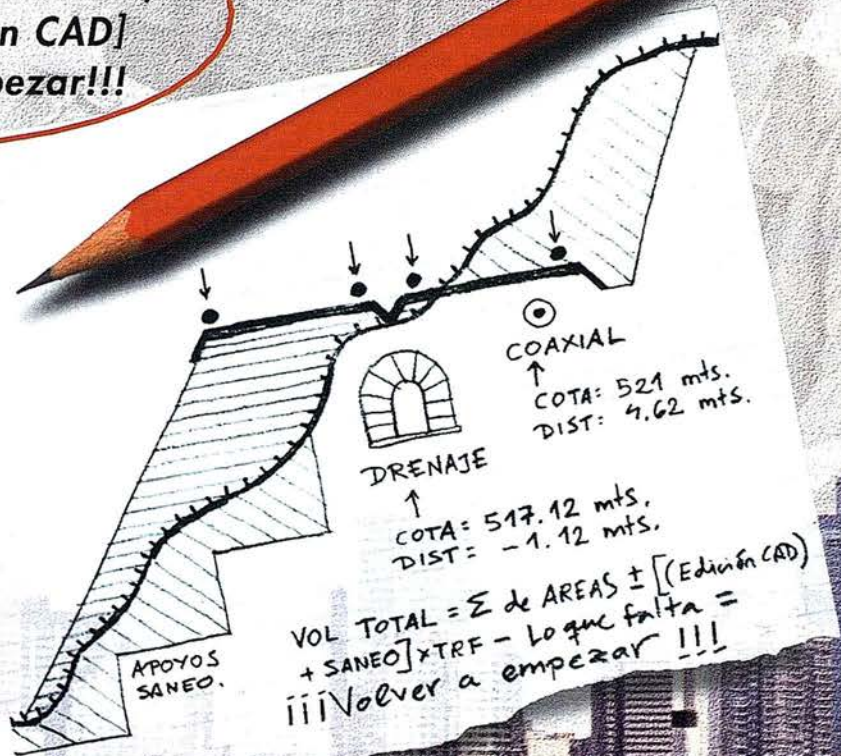 n CAD]
pezar!!!
COAXIAL
COTA: 521 mts.
DIST: 4.62 mts.
DRENAJE
COTA = 517.12 mts.
DIST = -1.12 mts.
APOYOS
SANEO.
VOL TOTAL = Σ de AREAS ± [(Edición CAD)
+ SANEO] x TRF - Lo que falta =
¡¡¡Volver a empezar !!!